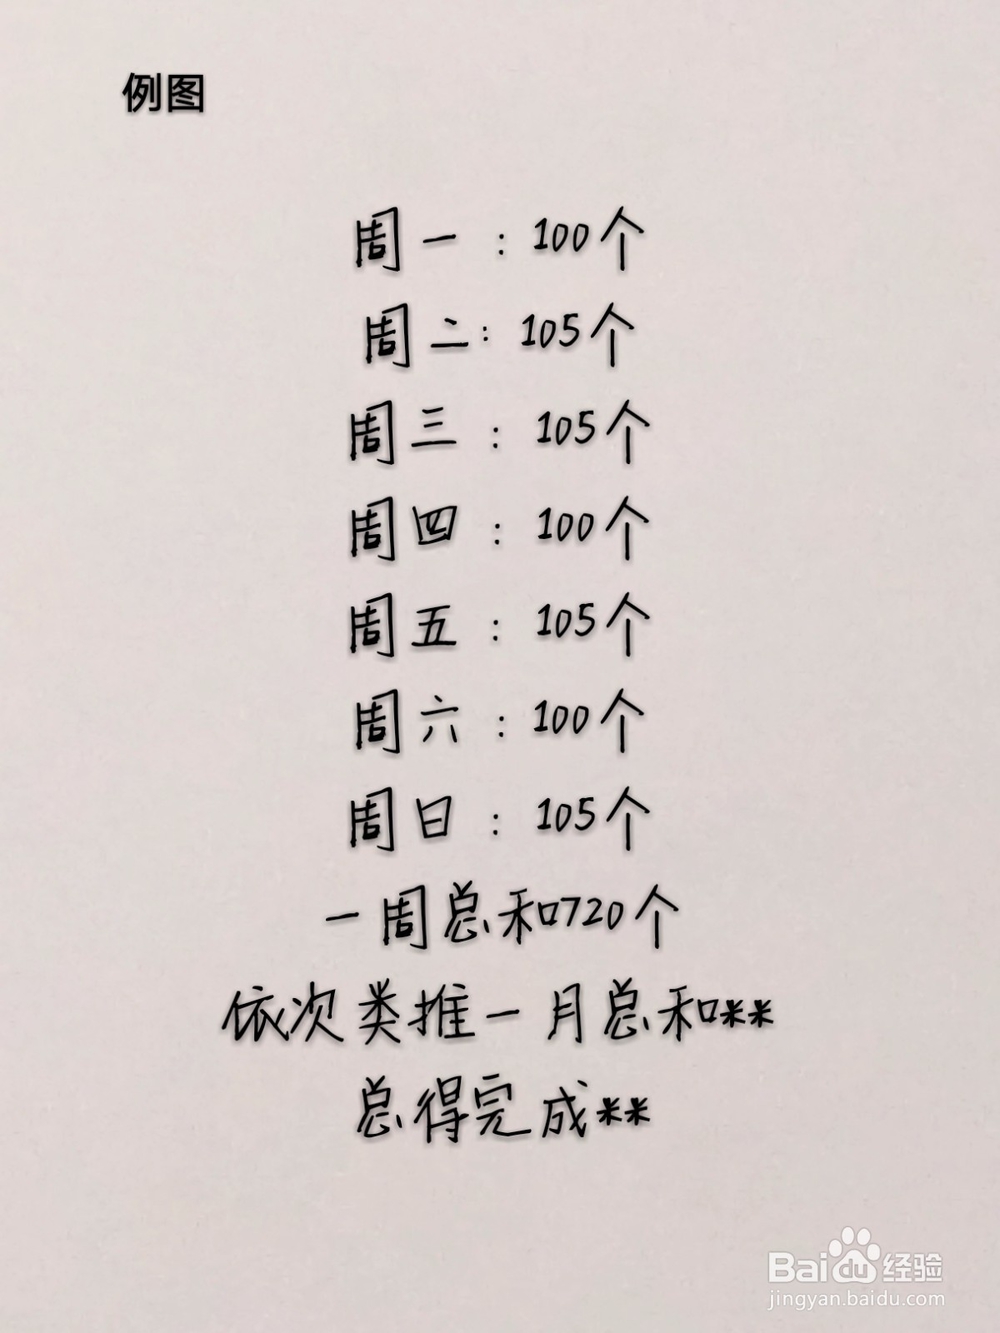 例图
周一：100个
周二：105个
周三：105个
周四：100个
周五：105个
周六：100个
周日：105个
一周总和720个
依次类推一月总和**
总得完成**
Baidu经验
jingyan.baidu.com